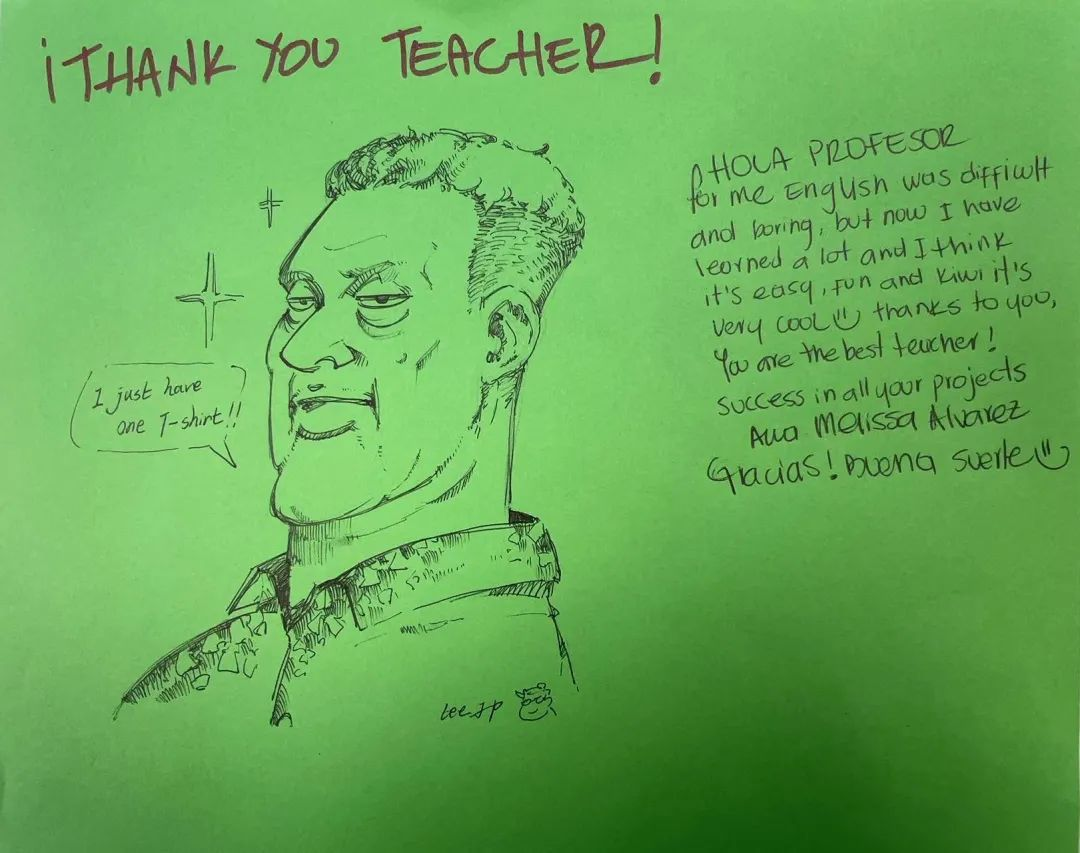 ¡THANK YOU TEACHER!
HOLA PROFESOR
for me English was difficult
and boring, but now I have
learned a lot and I think
it's easy, fun and kiwi it's
very cool thanks to you,
You are the best teacher!
success in all your projects
Melissa Alvarez
Gracias! Buena suerte
I just have
one T-shirt!!
Lee.JP